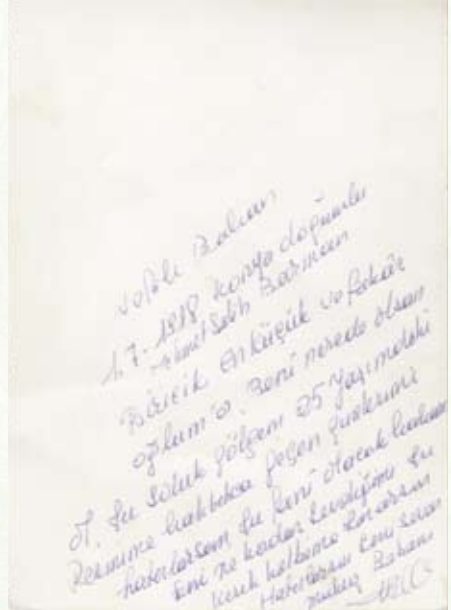 Babam
1.7-1918 Konya doğumlu
Ahmet Salih Basman
Biricik en küçük vefakâr
oğlum'a. Beni nerede olsan
Şu soluk gölgem 25 yaşımdaki
Resmime baktıkca geçen günlerimi
hatırlarsan şu seni
seni ne kadar sevdiğimi şu
kırık kalbime sorarsan
Hatırlarsın seni seven
Baban